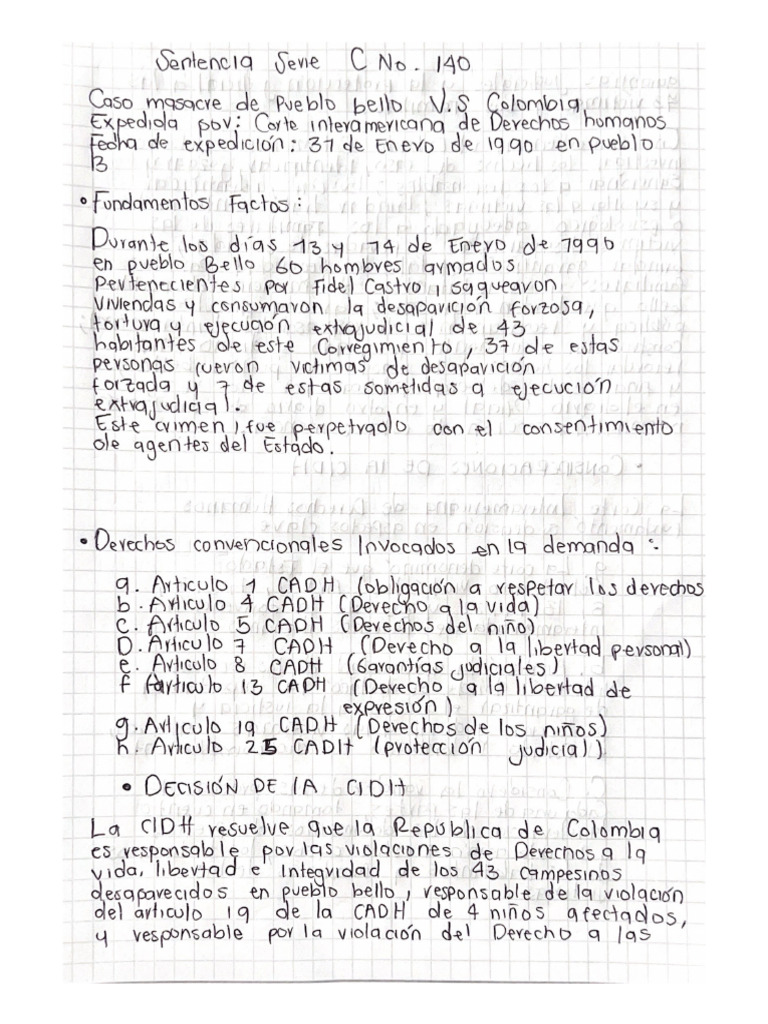 Sentencia Serie C No. 140
Caso masacre de Pueblo bello V.S Colombia
Expedida por: Corte interamericana de Derechos humanos
Fecha de expedición: 31 de Enero de 1990 en pueblo
B
• Fundamentos Factos:
Durante los días 13 y 14 de Enero de 1990
en pueblo Bello 60 hombres armados
Pertenecientes por Fidel Castro, saquearon
viviendas y consumaron la desaparición forzosa,
tortura y ejecución extrajudicial de 43
habitantes de este Corregimiento, 37 de estas
personas fueron victimas de desaparición
forzada y 7 de estas sometidas a ejecución
extrajudicial.
Este crimen, fue perpetrado con el consentimiento
de agentes del Estado.
• Derechos convencionales Invocados en la demanda:
a. Articulo 1 CADH (obligación a respetar los derechos
b. Articulo 4 CADH (Derecho a la vida)
c. Articulo 5 CADH (Derechos del niño)
D. Articulo 7 CADH (Derecho a la libertad personal)
e. Articulo 8 CADH (Garantías judiciales)
f Articulo 13 CADH (Derecho a la libertad de
expresión)
g. Articulo 19 CADH (Derechos de los niños)
h. Articulo 25 CADH (protección judicial)
• DECISIÓN DE LA CIDH
La CIDH resuelve que la República de Colombia
es responsable por las violaciones de Derechos a la
vida, libertad e integridad de los 43 campesinos
desaparecidos en pueblo bello, responsable de la violación
del articulo 19 de la CADH de 4 niños afectados,
y responsable por la violación del Derecho a las